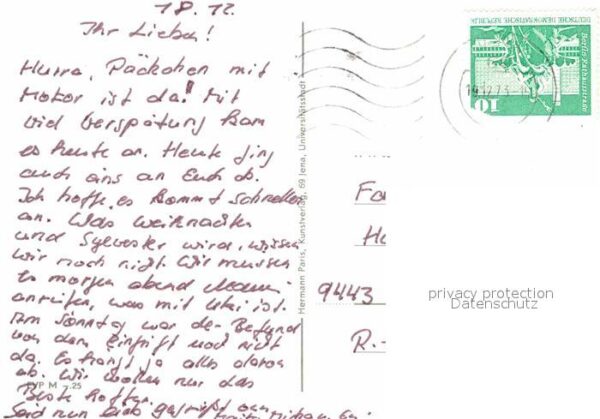 18.12.
Ihr Lieben!
Hurra, Päckchen mit
Motor ist da! Mit
viel Verspätung kam
es heute an. Heute ging
auch eins an Euch ab.
Ich hoffe, es kommt schneller
an. Was Weihnachten
und Sylvester wird, wissen
wir noch nicht. Wir müssen
morgen abend
anrufen, was mit ist.
Am Sonntag war der Befund
von dem Eingriff noch nicht
da. Es hängt ja alles davon
ab. Wir wollen nur das
Beste hoffen.
Seid nun lieb gegrüßt von
VP M -.25
Hermann Paris, Kunstverlag, 69 Jena, Universitätsstadt
DEUTSCHE DEMOKRATISCHE REPUBLIK
Berlin Rathausstraße
10
19.12.73
Fa
Ha
9443
R.-
privacy protection
Datenschutz